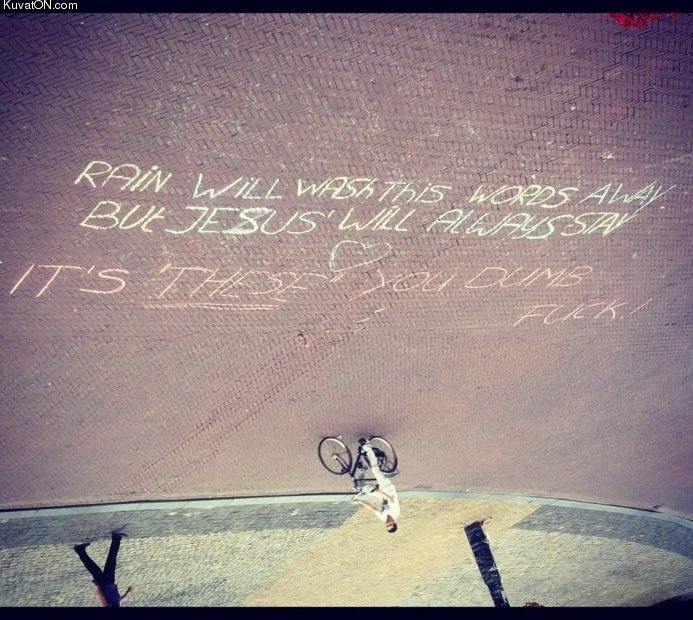 KuvatON.com
RAiN WiLL WASh This WORDS AWAY.
BUt JESUS' WiLL ALWAYS STAY
IT'S "THESE" YOU DUMB
FUCK!